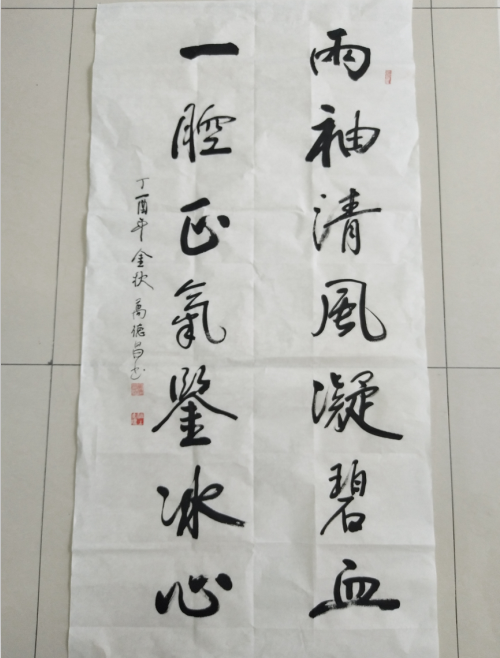 兩袖清風凝碧血
一腔正氣鑒冰心
丁酉年金秋萬德昌书